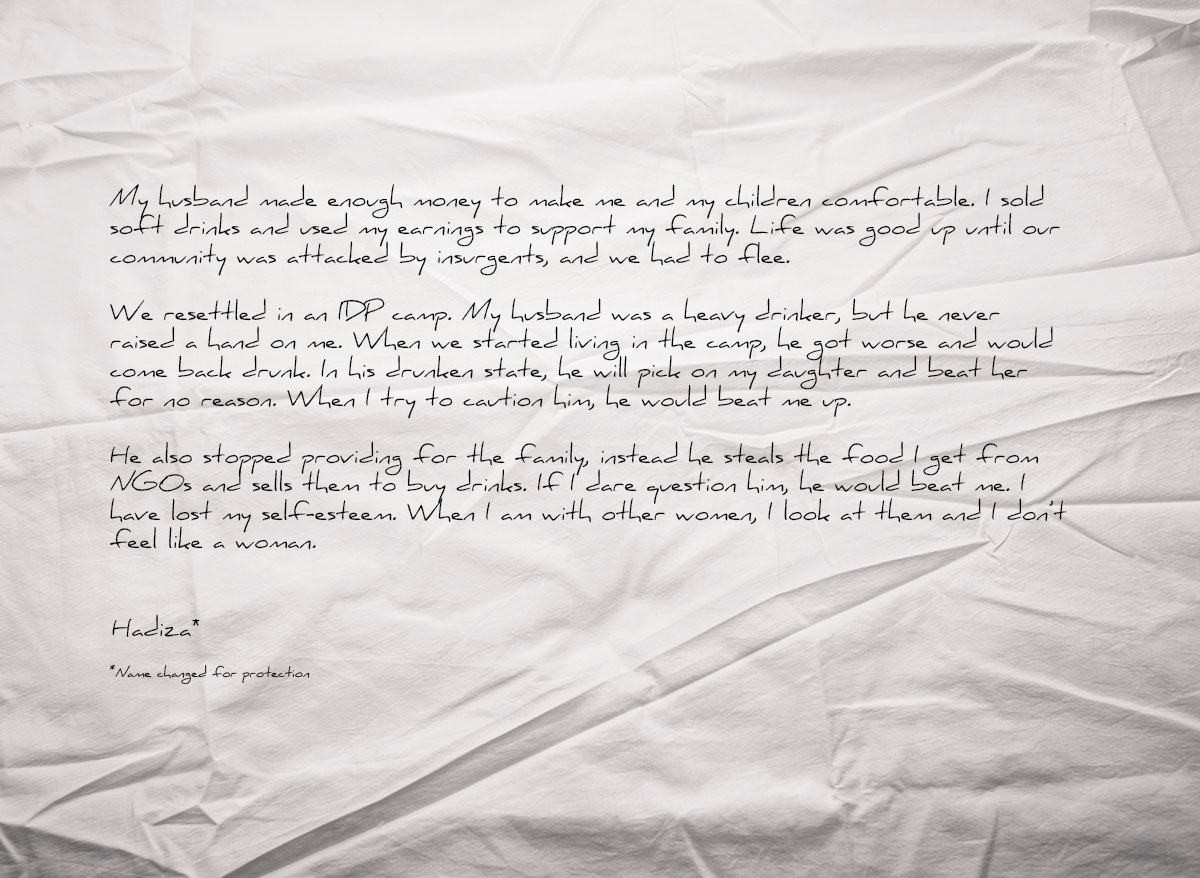 My husband made enough money to make me and my children comfortable. I sold
soft drinks and used my earnings to support my family. Life was good up until our
community was attacked by insurgents, and we had to flee.
We resettled in an IDP camp. My husband was a heavy drinker, but he never
raised a hand on me. When we started living in the camp, he got worse and would
come back drunk. In his drunken state, he will pick on my daughter and beat her
for no reason. When I try to caution him, he would beat me up.
He also stopped providing for the family, instead he steals the food I get from
NGOs and sells them to buy drinks. If I dare question him, he would beat me. I
have lost my self-esteem. When I am with other women, I look at them and I don't
feel like a woman.
Hadiza*
*Name changed for protection